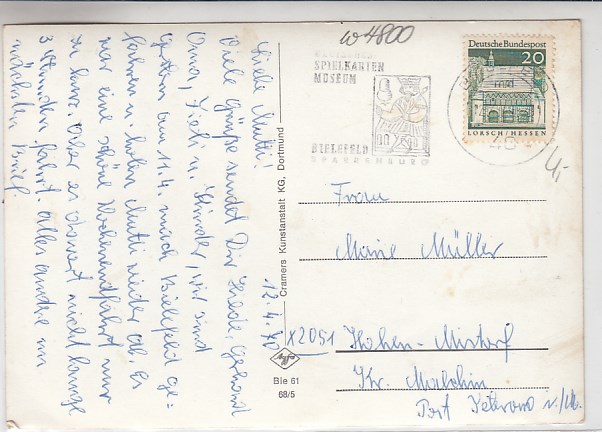 W 4800
DEUTSCHES
SPIELKARTEN
MUSEUM
BIELEFELD
SPARRENBURG
Deutsche Bundespost
20
LORSCH/HESSEN
48
4,-
12.4.70
Liebe Mutti!
Viele Grüße sendet Dir Frieda, Gerhard
Oma, u. Kinder, wir sind
gestern am 11.4. nach Bielefeld ge=
fahren u. holen Mutti wieder ab. Es
war eine schöne Wochenendfahrt nur
zu kurz. Aber es dauert nicht lange
3 Stunden Fahrt. Alles andre im
nächsten Brief.
Cramers Kunstanstalt KG, Dortmund
Bie 61
68/5
Frau
Marie Müller
X2051 Hohen-Mistorf
Kr. Malchin
Post